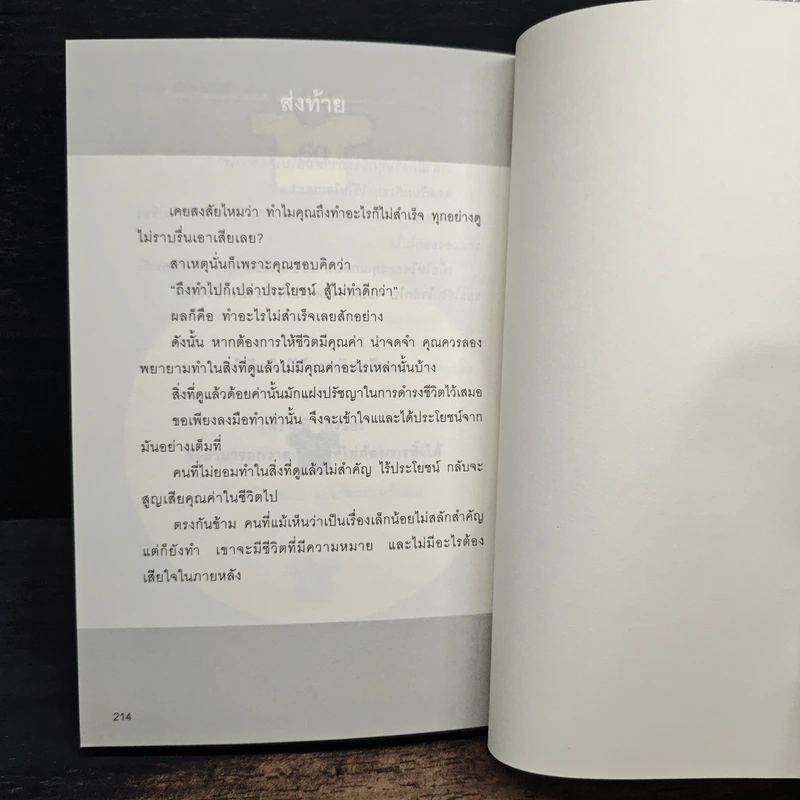 ส่งท้าย
เคยสงสัยไหมว่า ทำไมคุณถึงทำอะไรก็ไม่สำเร็จ ทุกอย่างดู
ไม่ราบรื่นเอาเสียเลย?
สาเหตุนั่นก็เพราะคุณชอบคิดว่า
“ถึงทำไปก็เปล่าประโยชน์ สู้ไม่ทำดีกว่า”
ผลก็คือ ทำอะไรไม่สำเร็จเลยสักอย่าง
ดังนั้น หากต้องการให้ชีวิตมีคุณค่า น่าจดจำ คุณควรลอง
พยายามทำในสิ่งที่ดูแล้วไม่มีคุณค่าอะไรเหล่านั้นบ้าง
สิ่งที่ดูแล้วด้อยค่านั้นมักแฝงปรัชญาในการดำรงชีวิตไว้เสมอ
ขอเพียงลงมือทำเท่านั้น จึงจะเข้าใจและได้ประโยชน์จาก
มันอย่างเต็มที่
คนที่ไม่ยอมทำในสิ่งที่ดูแล้วไม่สำคัญ ไร้ประโยชน์ กลับจะ
สูญเสียคุณค่าในชีวิตไป
ตรงกันข้าม คนที่แม้เห็นว่าเป็นเรื่องเล็กน้อยไม่สลักสำคัญ
แต่ก็ยังทำ เขาจะมีชีวิตที่มีความหมาย และไม่มีอะไรต้อง
เสียใจในภายหลัง
214